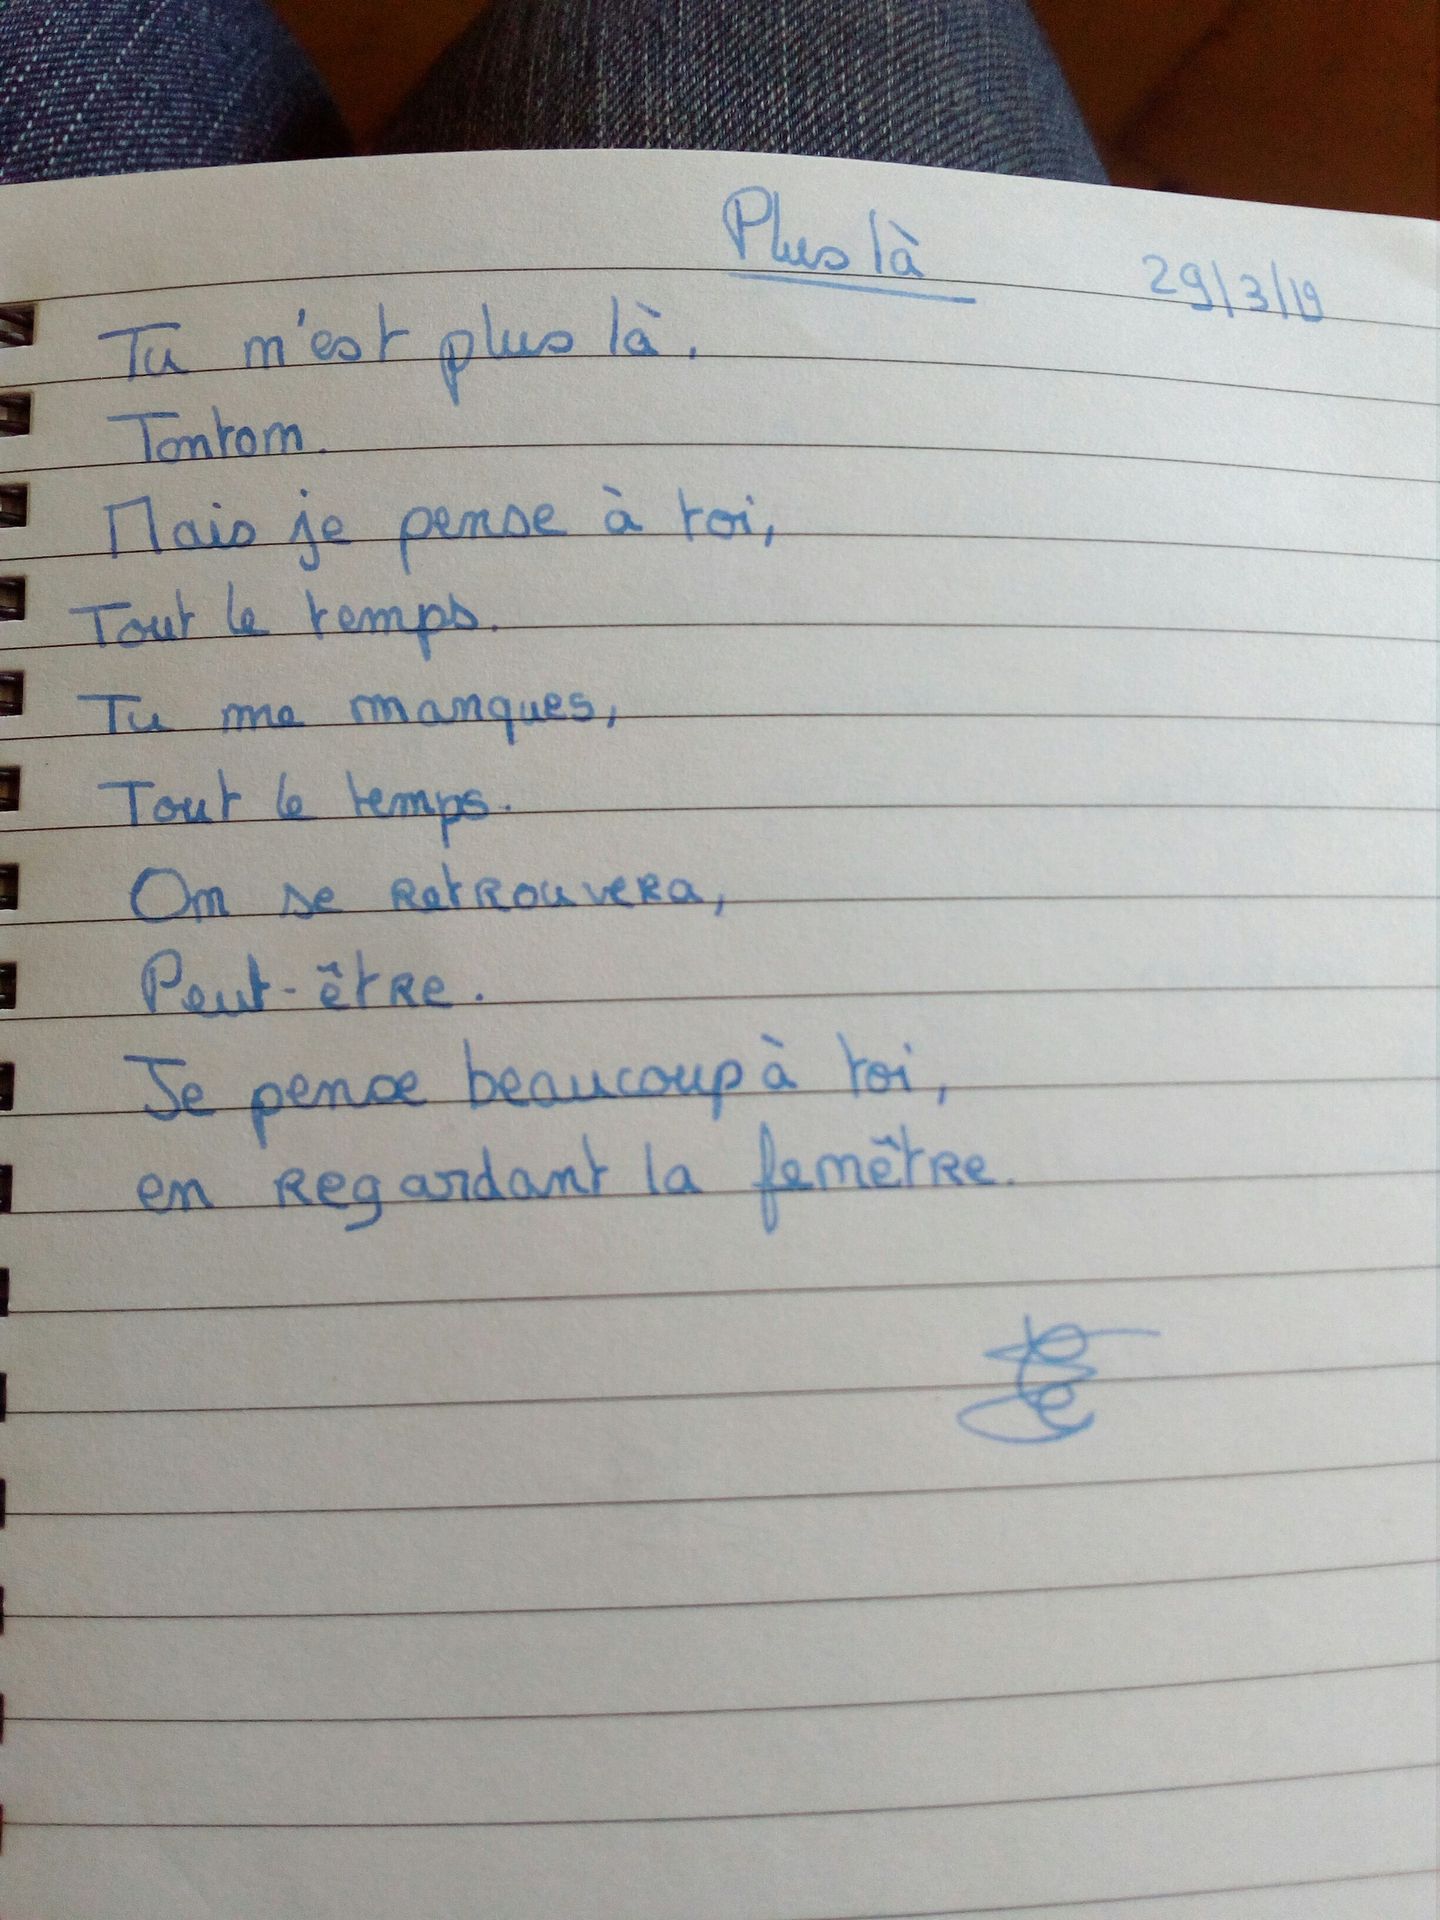 Plus là
29/3/19
Tu m'est plus là.
Tonton.
Mais je pense à toi,
Tout le temps.
Tu me manques,
Tout le temps.
On se retrouvera,
Peut-être.
Je pense beaucoup à toi,
en regardant la fenêtre.